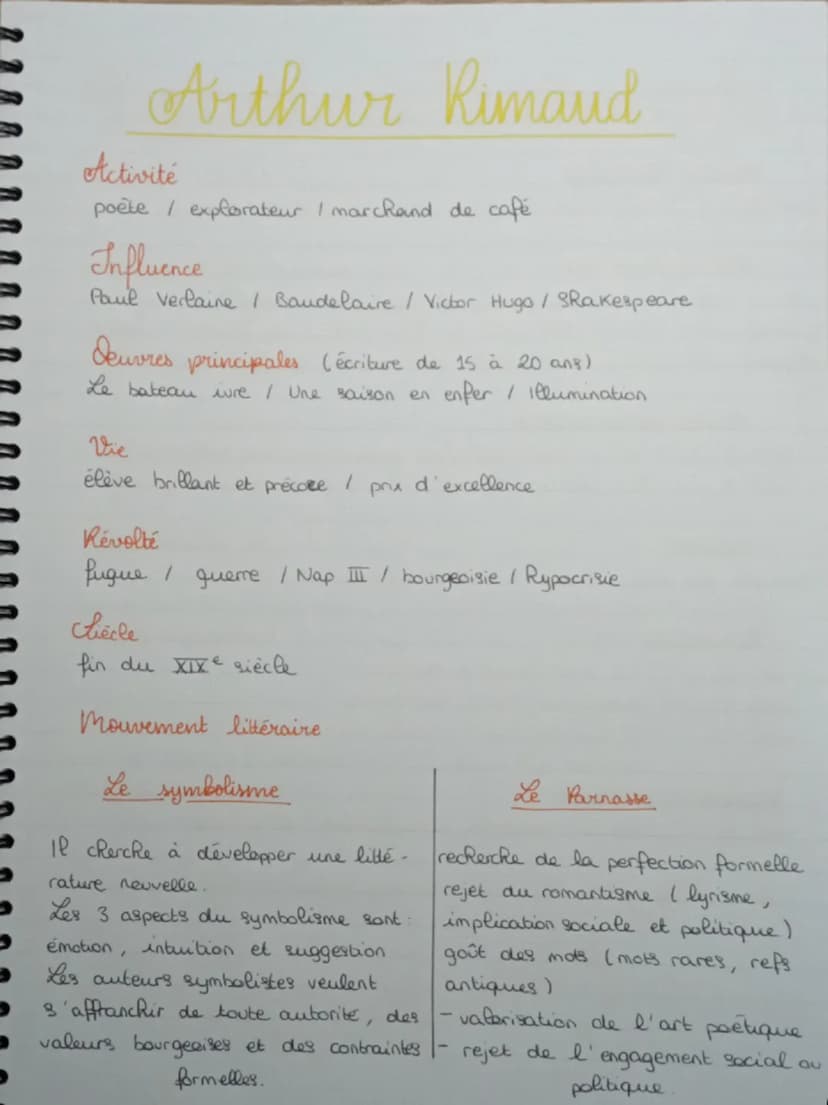 Arthur Rimaud
Activité
poète / explorateur / marchand de café
Influence
Paul Verlaine / Baudelaire / Victor Hugo / Shakespeare
Oeuvres principales (écriture de 15 à 20 ans)
Le bateau ivre / Une saison en enfer / Illumination
Vie
élève brillant et précoce / prix d'excellence
Révolté
fugue / guerre / Nap III / bourgeoisie / hypocrisie
Siècle
fin du XIXe siècle
Mouvement littéraire
Le symbolisme
Il cherche à développer une litté-
rature nouvelle.
Les 3 aspects du symbolisme sont :
émotion, intuition et suggestion
Les auteurs symbolistes veulent
s'affranchir de toute autorité, des
valeurs bourgeoises et des contraintes
formelles.
Le Parnasse
recherche de la perfection formelle
rejet du romantisme (lyrisme,
implication sociale et politique)
goût des mots (mots rares, refs
antiques)
- valorisation de l'art poètique
- rejet de l'engagement social ou
politique.